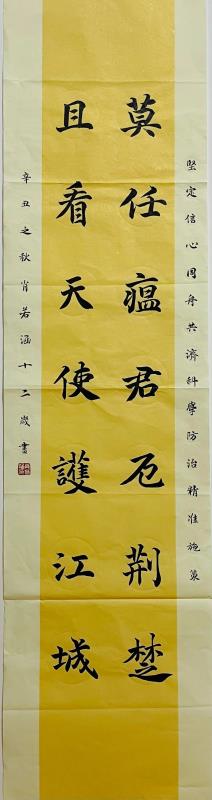 堅定信心同舟共濟科學防治精准施策
莫任瘟君厄荆楚
且看天使護江城
辛丑之秋肖若涵十二歲書